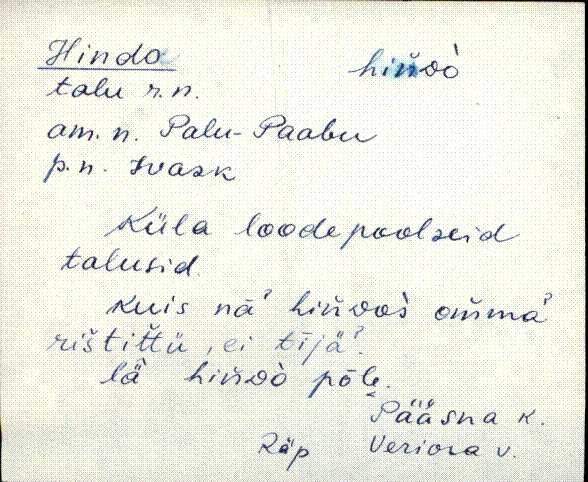 Hindo hiňdò
talu r.n.
am. n. Palu-Paabu
p.n. Ivask
Küla loodepoolseid
talusid.
kuis nāˀ hiňdòs om̆māˀ
rištit̆tü, ei tījäˀ.
lǟ hiňdò pōlę.
Pääsna k.
Räp Veriora v.